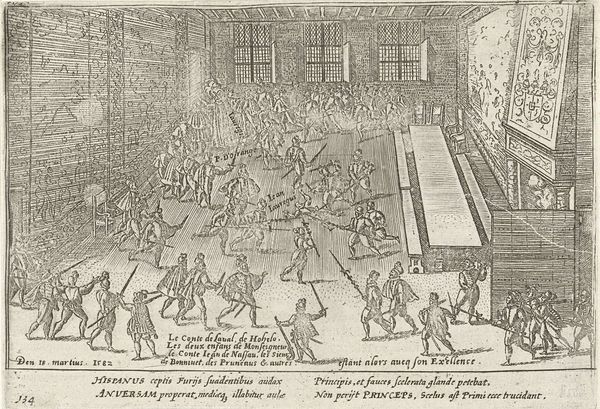 Iauregui
P. Dorange
Iean
Iauregui
Le Conte de Laual, de Hohelo.
Les deux enfans de Monseigneur
le Conte Iean de Nassau, les Sieurs
de Bonniuet, des Pruneaus & autres
estant alors aueq son Excellence.
Den 18. martius. 1582
HISPANUS ceptis Furijs suadentibus audax
ANVERSAM properat, mediæq, illabitur aulæ
Principis, et fauces scelerata glande petebat.
Non perijt PRINCEPS, Scelus ast Primi ecce trucidant.
134